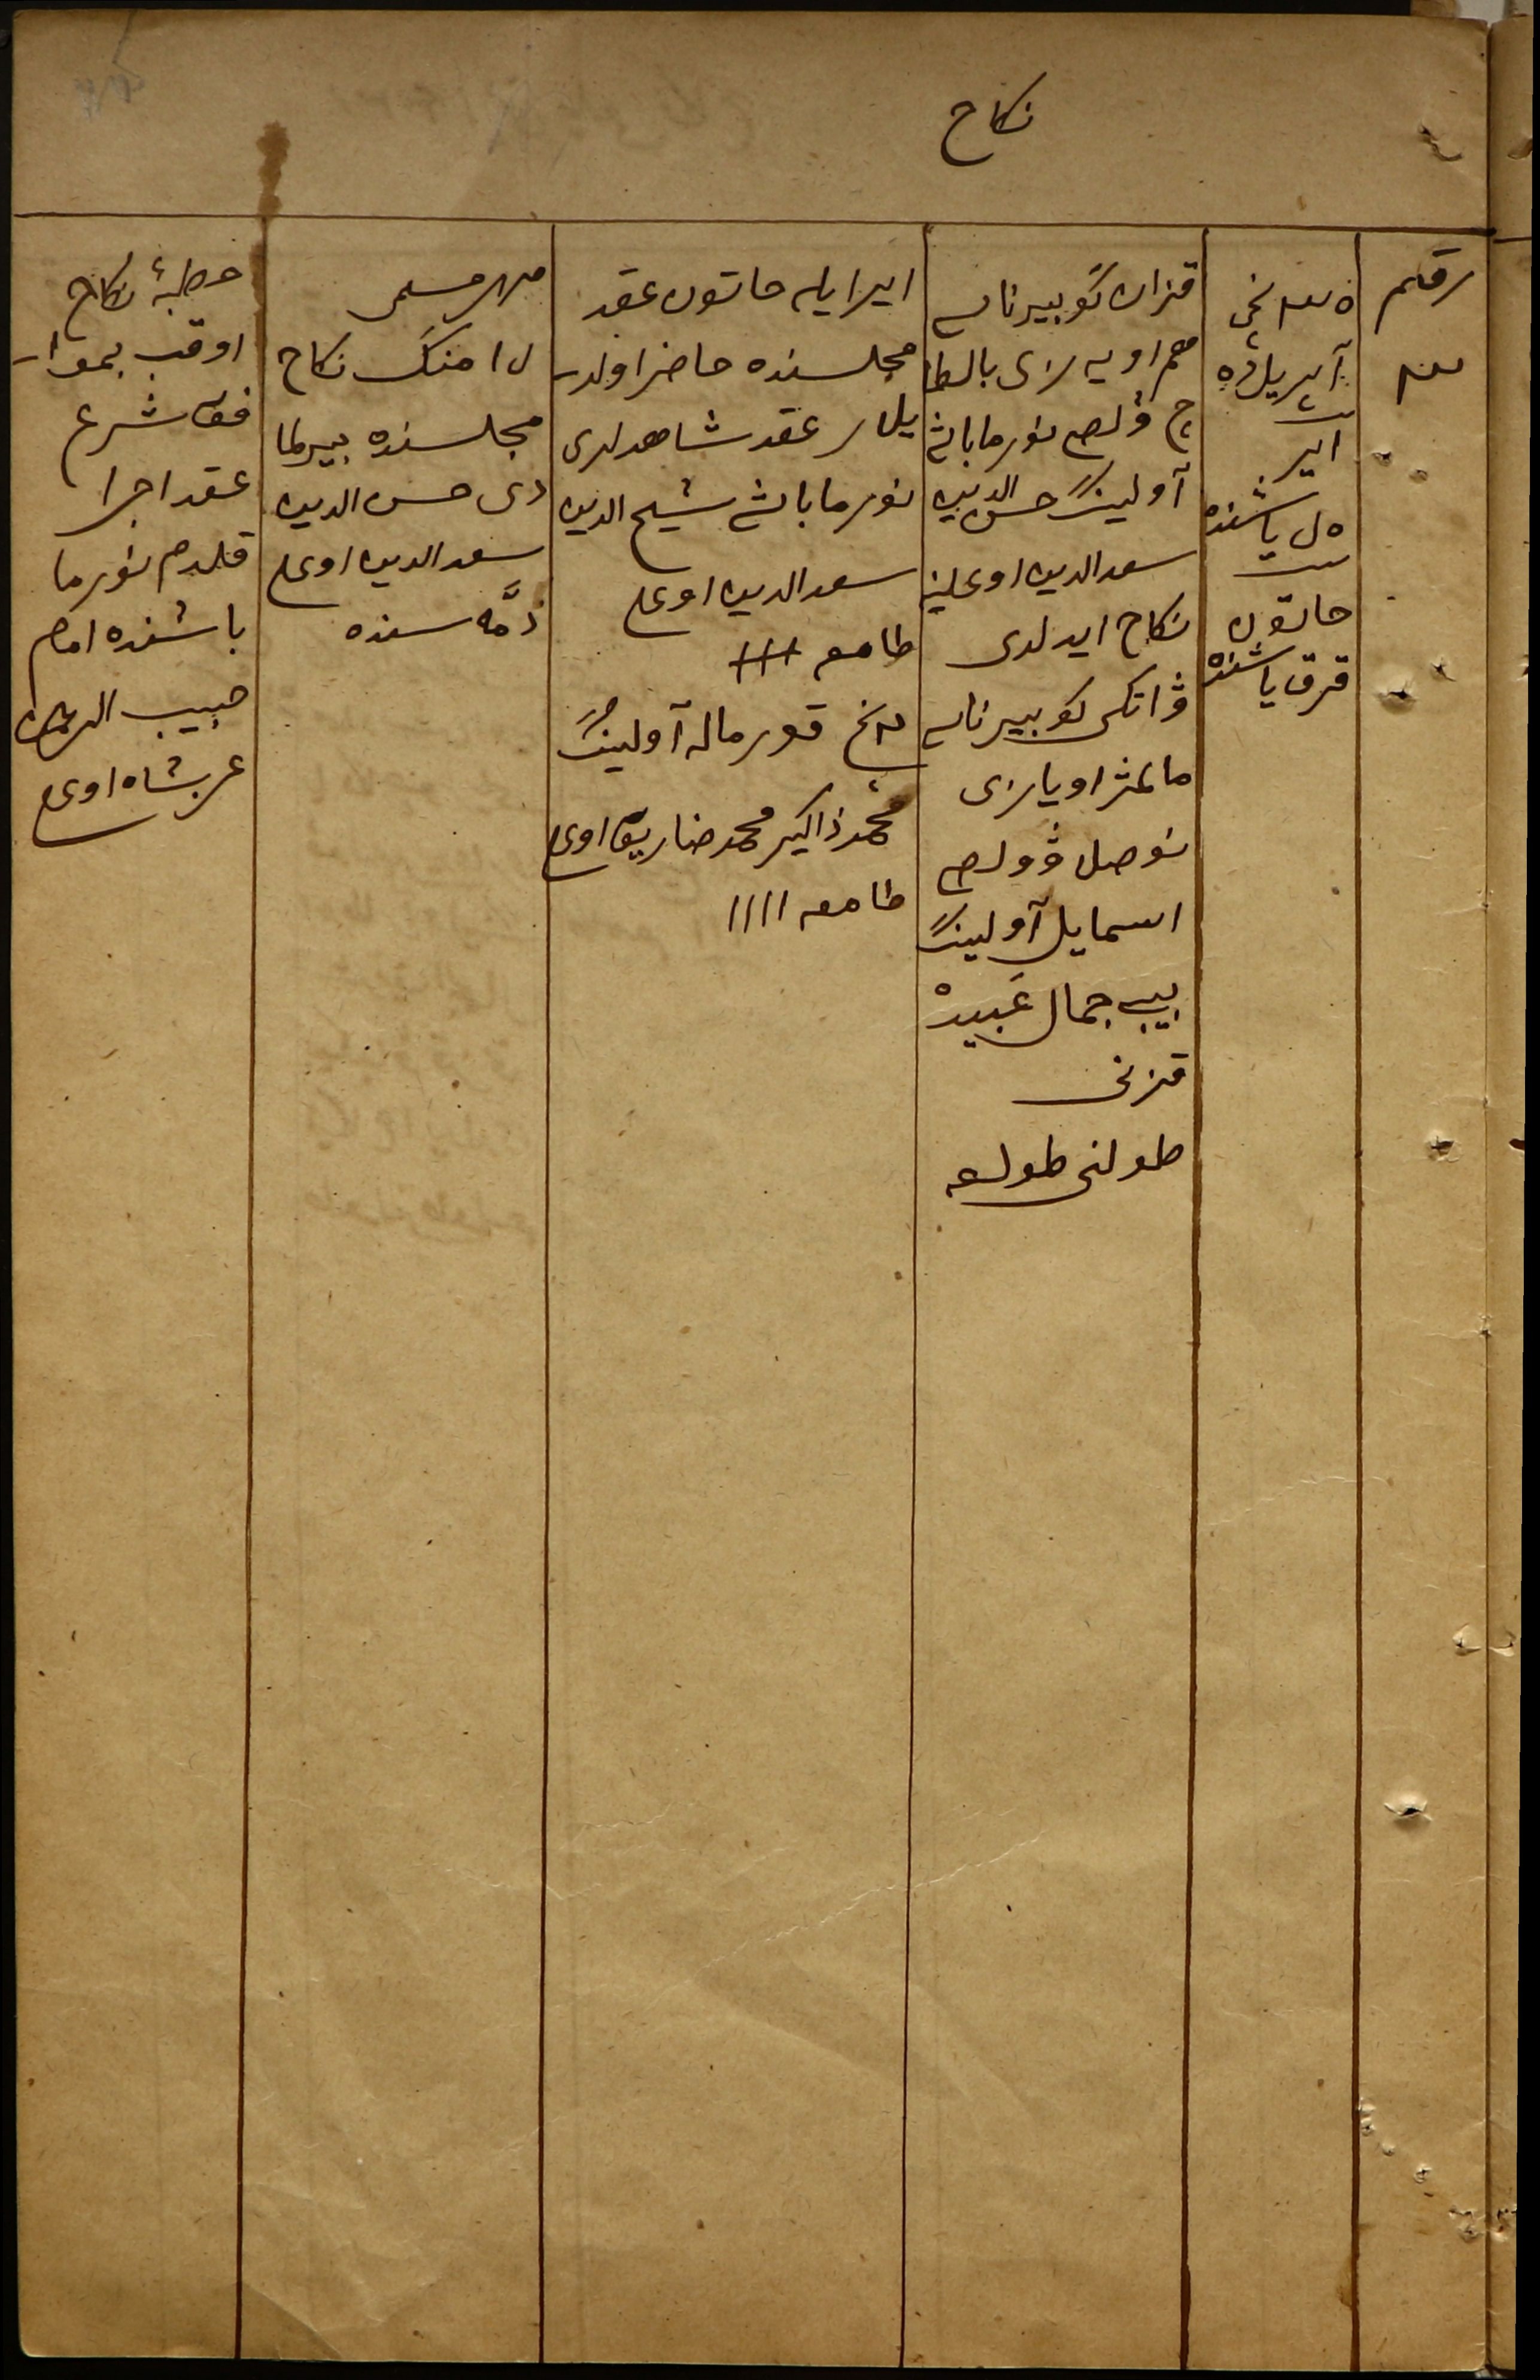 نكاح
رقم
آپریل ده
ایر
یاشنده
خاتون
قرق یاشنده
قزان گوبیرناسی
مم اویه زی بالطا
چ ڤلص نورما باش
آولینڭ حسن الدین
سعد الدین اوغلینه
نكاح ایدلدی
ڤاتكی گوبیرناسی
مالمژ اویازی
نوصل ڤولص
اسمایل آولینڭ
بیبی جمال عبید
قزنی
طولنی طولغه
ایر ایله خاتون عقد
مجلسنده حاضر اولد
یلر عقد شاهدلری
نورما باش شیخ الدین
سعد الدین اوغلی
طامغه
قورماله آولینڭ
محمد ذاكیر محمد ضاریف اوغلی
طامغه ۱۱۱۱
مهر مسمی
منك نكاح
مجلسنده بیرلما
دی حسن الدین
سعد الدین اوغلی
ذمّه سنده
خطبۀ نكاح
اوقب بموا
فق شرع
عقد اجرا
قلدم نورما
باشنده امام
حبیب الرحمن
عربشاه اوغلی